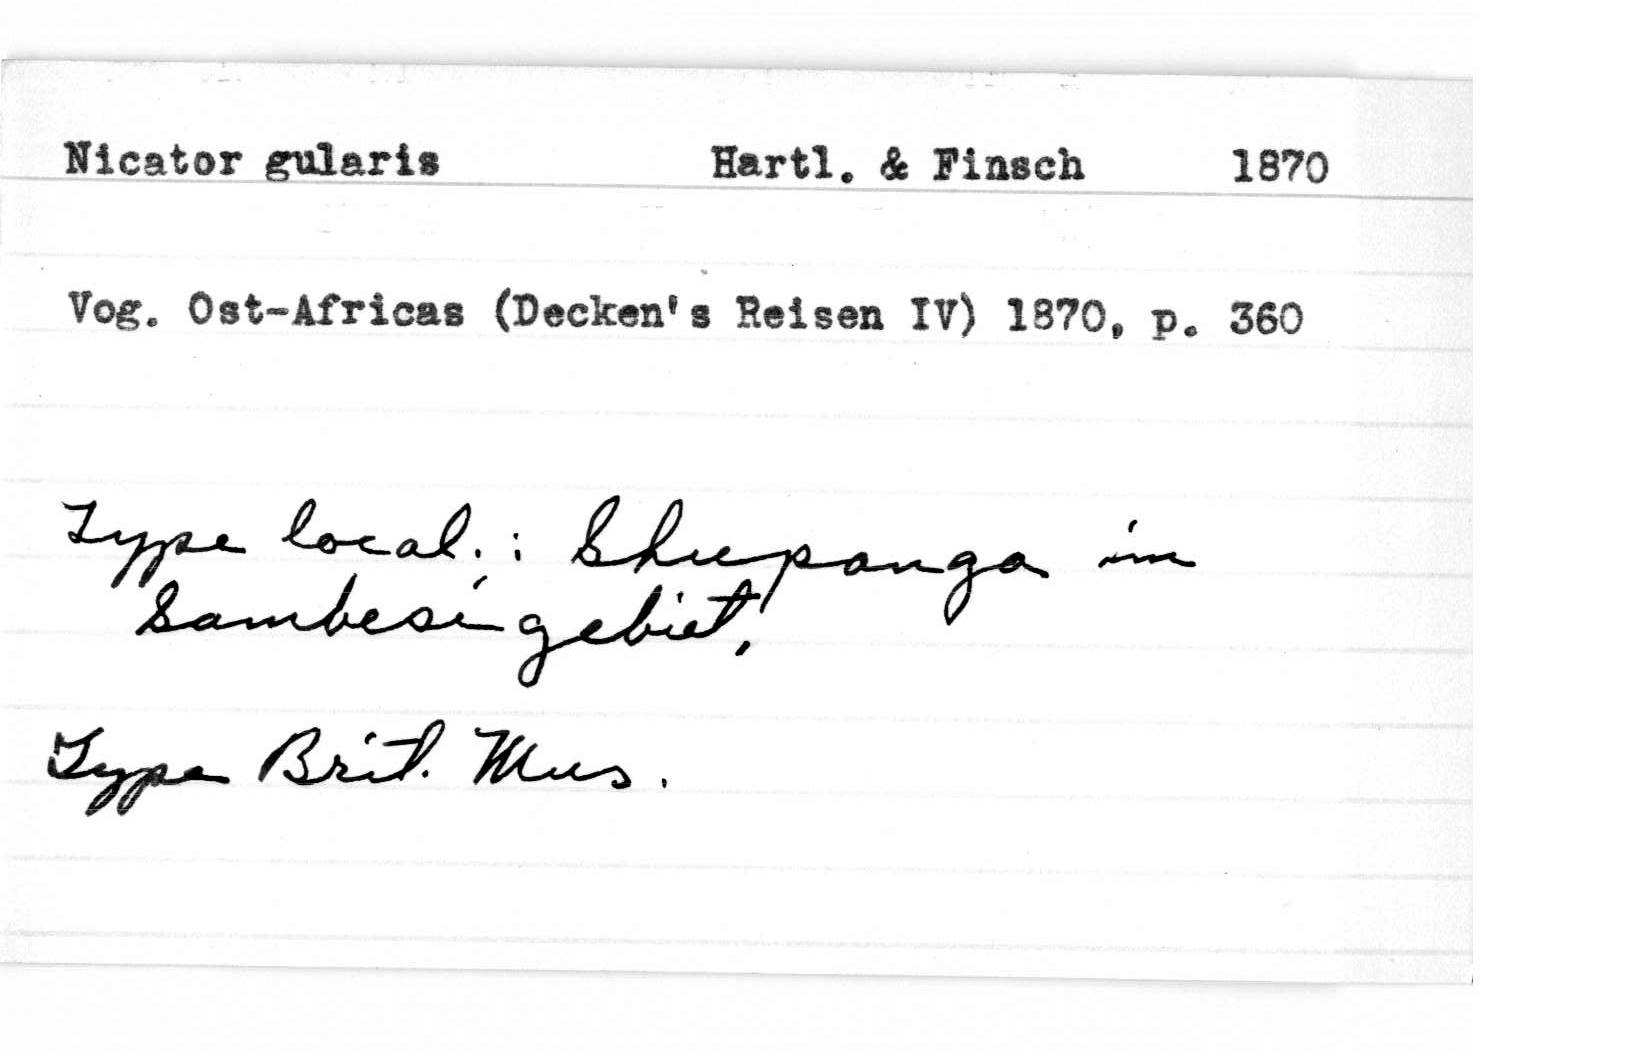 Nicator gularis Hartl. & Finsch 1870
Vog. Ost-Africas (Decken's Reisen IV) 1870, p. 360
Type local.: Shupanga im
Sambesi gebiet,
Type Brit. Mus.